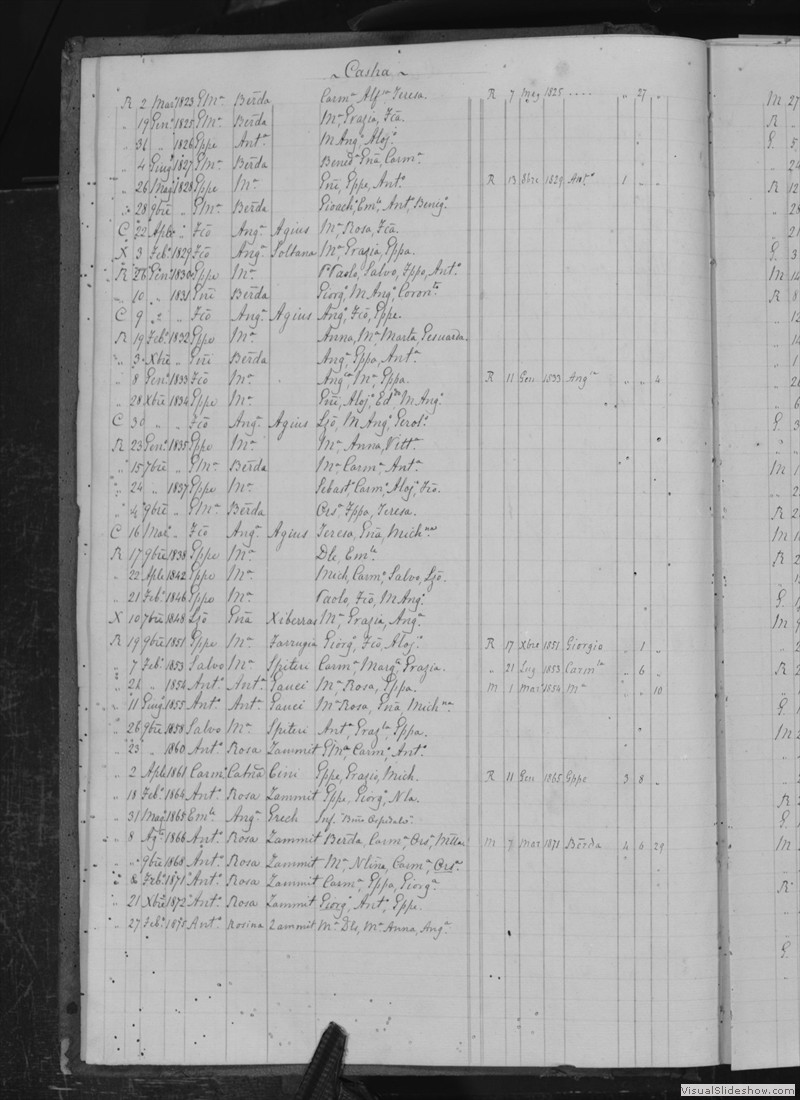 Casha
R 2 Mar 1823 GMa Berda Carma Alfsa Teresa. R 7 Mag 1825 .... „ 27 „
„ 19 Genо 1825 GMa Berda Ma Grazia, Fca.
„ 31 „ 1826 Gppe Anta M Anga Aloja
„ 4 Giugo 1827 GMa Berda Beneda Ena, Carma
„ 26 Mago 1828 Gppe Ma Eñe, Gppe, Anto R 13 8bre 1829 Anto 1 „ „
„ 28 9bre „ GMa Berda Gioacho Ema Ant, Benigo
C 22 Aple „ Fco Anga Agius Ma Rosa, Fca.
X 3 Febo 1829 Fco Anga Soltana Ma Grazia, Gppa.
R 26 Geno 1830 Gppe Ma Paolo, Salvo, Fppo, Anto
„ 10 „ 1831 Eñe Berda Giorgo M Anga Coronta
C 9 „ „ Fco Anga Agius Anga Fco, Gppe.
R 19 Febo 1832 Gppe Ma Anna, Ma Marta, Gesuarda.
„ 3 Xbre „ Eñe Berda Anga Gppa, Anta
„ 8 Geno 1833 Fco Ma Angca Ma Gppa. R 11 Gen 1833 Anga „ „ 4
„ 28 Xbre 1834 Gppe Ma Eñe, Alojo Edo M Ango
C 30 „ „ Fco Anga Agius Ljo, M Ango Gerolo
R 23 Geno 1835 Gppe Ma Ma Anna, Vitta
„ 15 7bre „ GMa Berda Ma Carma Anta
„ 24 „ 1837 Gppe Ma Sebasto Carmo Aloj, Fco.
„ 4 9bre „ GMa Berda Orsa Fppa, Teresa.
C 16 Maro „ Fco Anga Agius Teresa, Ena, Michna
R 17 9bre 1838 Gppe Ma Dle, Emle
„ 22 Aple 1842 Gppe Ma Mich, Carmo Salvo, Ljo.
„ 21 Febo 1846 Gppe Ma Paolo, Fco, M Ango
X 10 7bre 1848 Ljo Ena Xiberras Ma Grazia, Anga
R 19 9bre 1851 Gppe Ma Farrugia Giorgo Fco, Alojo R 17 Xbre 1851 Giorgio „ 1 „
„ 7 Febo 1853 Salvo Ma Spiteri Carma Marga Grazia. „ 21 Lug 1853 Carmla „ 6 „
„ 26 „ 1854 Anto Anta Gauci Ma Rosa, Gppa. M 1 Mar 1854 Ma „ „ 10
„ 11 Giugo 1855 Anto Anta Gauci Ma Rosa, Ena Michna
„ 26 9bre 1858 Salvo Ma Spiteri Anta Grazla Gppa.
„ 23 „ 1860 Anto Rosa Zammit GMa Carmo Anto
„ 2 Aple 1861 Carmo Catna Cini Gppe, Grazio, Mich. R 11 Gen 1865 Gppe 3 8 „
„ 18 Febo 1864 Anto Rosa Zammit Gppe, Giorgo, Nla.
„ 31 Mago 1865 Emle Anga Grech Inf.
„ 8 Ago 1866 Anto Rosa Zammit Berda, Carma Orsa M 7 Mar 1871 Berda 4 6 29
„ „ 9bre 1868 Anto Rosa Zammit Ma Nlina, Carma Orsa
„ 8 Febo 1871 Anto Rosa Zammit Carma Gppa, Giorga
„ 21 Xbre 1872 Anto Rosa Zammit Giorgo Anto Gppe.
„ 27 Febo 1875 Anto Rosina Zammit Ma Dls, Ma Anna, Anga
VisualSlideshow.com